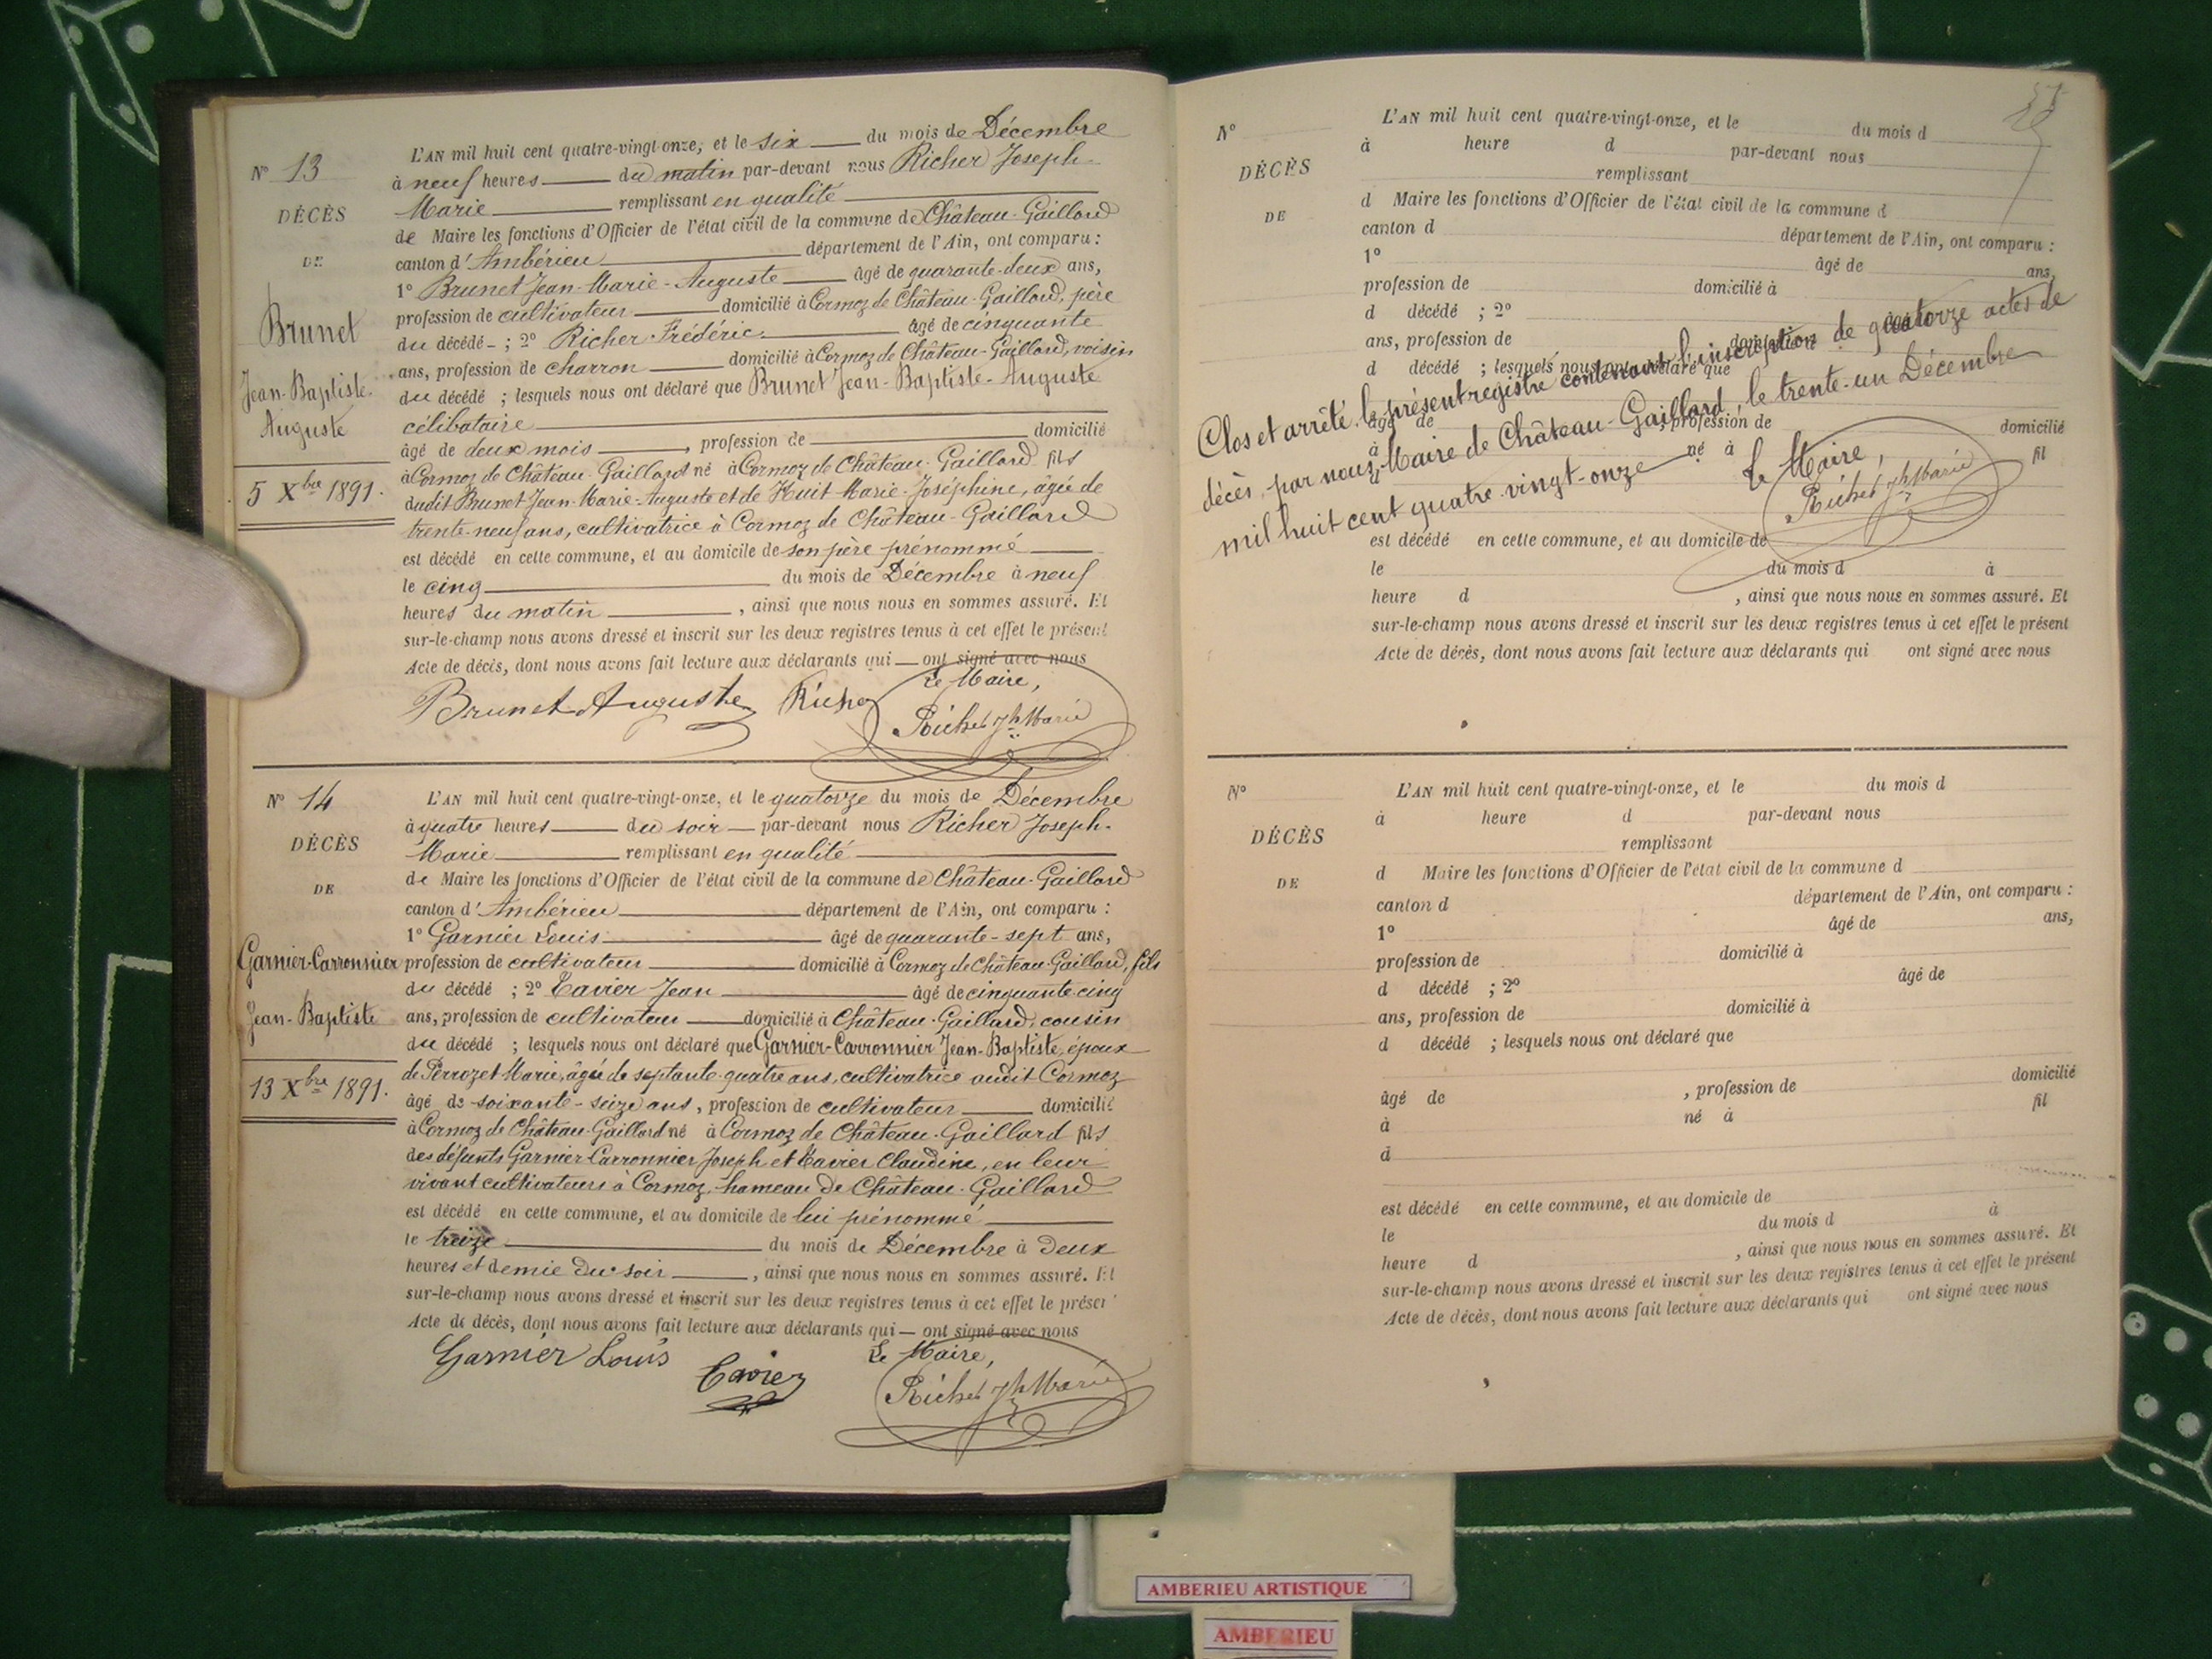 N° 13
DÉCÈS
DE
Brunet
Jean-Baptiste-
Auguste
5 Xbre 1891.
L'AN mil huit cent quatre-vingt-onze, et le six du mois de Décembre
à neuf heures du matin par-devant nous Richer Joseph-
Marie remplissant en qualité
de Maire les fonctions d'Officier de l'état civil de la commune de Château-Gaillard
canton d'Ambérieu département de l'Ain, ont comparu :
1° Brunet Jean-Marie-Auguste âgé de quarante-deux ans,
profession de cultivateur domicilié à Cormoz de Château-Gaillard, père
du décédé ; 2° Richer Frédéric âgé de cinquante
ans, profession de charron domicilié à Cormoz de Château-Gaillard, voisin
du décédé ; lesquels nous ont déclaré que Brunet Jean-Baptiste-Auguste
célibataire
âgé de deux mois, profession de domicilié
à Cormoz de Château-Gaillard né à Cormoz de Château-Gaillard fils
dudit Brunet Jean-Marie-Auguste et de Huit Marie-Joséphine, âgée de
trente-neuf ans, cultivatrice à Cormoz de Château-Gaillard
est décédé en cette commune, et au domicile de son père prénommé
le cinq du mois de Décembre à neuf
heures du matin, ainsi que nous nous en sommes assuré. Et
sur-le-champ nous avons dressé et inscrit sur les deux registres tenus à cet effet le présent
Acte de décès, dont nous avons fait lecture aux déclarants qui — ont signé avec nous
Le Maire,
Brunet Auguste Richer Richer Jh Marie
N° 14
DÉCÈS
DE
Garnier-Carronnier
Jean-Baptiste
13 Xbre 1891.
L'AN mil huit cent quatre-vingt-onze, et le quatorze du mois de Décembre
à quatre heures du soir par-devant nous Richer Joseph-
Marie remplissant en qualité
de Maire les fonctions d'Officier de l'état civil de la commune de Château-Gaillard
canton d'Ambérieu département de l'Ain, ont comparu :
1° Garnier Louis âgé de quarante-sept ans,
profession de cultivateur domicilié à Cormoz de Château-Gaillard, fils
du décédé ; 2° Tavier Jean âgé de cinquante-cinq
ans, profession de cultivateur domicilié à Château-Gaillard, cousin
du décédé ; lesquels nous ont déclaré que Garnier-Carronnier Jean-Baptiste, époux
de Perrozet Marie, âgée de septante-quatre ans, cultivatrice audit Cormoz
âgé de soixante-seize ans, profession de cultivateur domicilié
à Cormoz de Château-Gaillard né à Cormoz de Château-Gaillard fils
des défunts Garnier-Carronnier Joseph et Tavier Claudine, en leur
vivant cultivateurs à Cormoz, hameau de Château-Gaillard
est décédé en cette commune, et au domicile de lui prénommé
le treize du mois de Décembre à deux
heures et demie du soir, ainsi que nous nous en sommes assuré. Et
sur-le-champ nous avons dressé et inscrit sur les deux registres tenus à cet effet le présen
Acte de décès, dont nous avons fait lecture aux déclarants qui — ont signé avec nous
Le Maire,
Garnier Louis Tavier Richer Jh Marie
N°
DÉCÈS
DE
L'AN mil huit cent quatre-vingt-onze, et le du mois d
à heure d par-devant nous
remplissant
d Maire les fonctions d'Officier de l'état civil de la commune d
canton d département de l'Ain, ont comparu :
1° âgé de ans,
profession de domicilié à
d décédé ; 2° âgé de
ans, profession de domicilié à
d décédé ; lesquels nous ont déclaré que
âgé de , profession de domicilié
à né à fil
d
Clos et arrêté le présent registre contenant l'inscription de quatorze actes de
décès, par nous, Maire de Château-Gaillard, le trente-un Décembre
mil huit cent quatre-vingt-onze
Le Maire,
Richer Jh Marie
est décédé en cette commune, et au domicile de
le du mois d à
heure d , ainsi que nous nous en sommes assuré. Et
sur-le-champ nous avons dressé et inscrit sur les deux registres tenus à cet effet le présent
Acte de décès, dont nous avons fait lecture aux déclarants qui ont signé avec nous
N°
DÉCÈS
DE
L'AN mil huit cent quatre-vingt-onze, et le du mois d
à heure d par-devant nous
remplissant
d Maire les fonctions d'Officier de l'état civil de la commune d
canton d département de l'Ain, ont comparu :
1° âgé de ans,
profession de domicilié à
d décédé ; 2° âgé de
ans, profession de domicilié à
d décédé ; lesquels nous ont déclaré que
âgé de , profession de domicilié
à né à fil
d
est décédé en cette commune, et au domicile de
le du mois d à
heure d , ainsi que nous nous en sommes assuré. Et
sur-le-champ nous avons dressé et inscrit sur les deux registres tenus à cet effet le présent
Acte de décès, dont nous avons fait lecture aux déclarants qui ont signé avec nous
AMBERIEU ARTISTIQUE
AMBERIEU